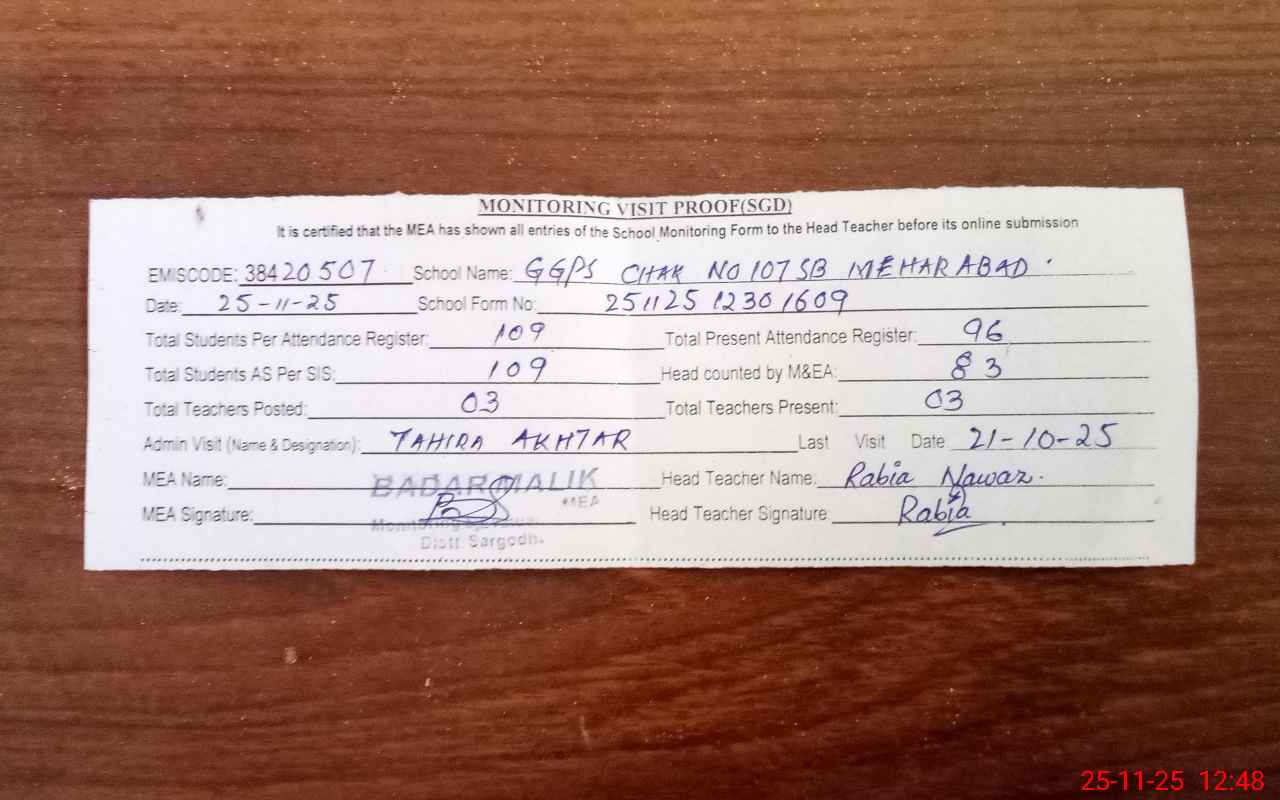 MONITORING VISIT PROOF(SGD)
It is certified that the MEA has shown all entries of the School Monitoring Form to the Head Teacher before its online submission
EMISCODE: 38420507 School Name: GGPS CHAK NO 107 SB MEHAR ABAD.
Date: 25-11-25 School Form No: 251125 12301609
Total Students Per Attendance Register: 109 Total Present Attendance Register: 96
Total Students AS Per SIS: 109 Head counted by M&EA: 83
Total Teachers Posted: 03 Total Teachers Present: 03
Admin Visit (Name & Designation): TAHIRA AKHTAR Last Visit Date 21-10-25
MEA Name: BADAR MALIK Head Teacher Name: Rabia Nawaz.
MEA
MEA Signature: Head Teacher Signature: Rabia
Distt. Sargodha
25-11-25 12:48